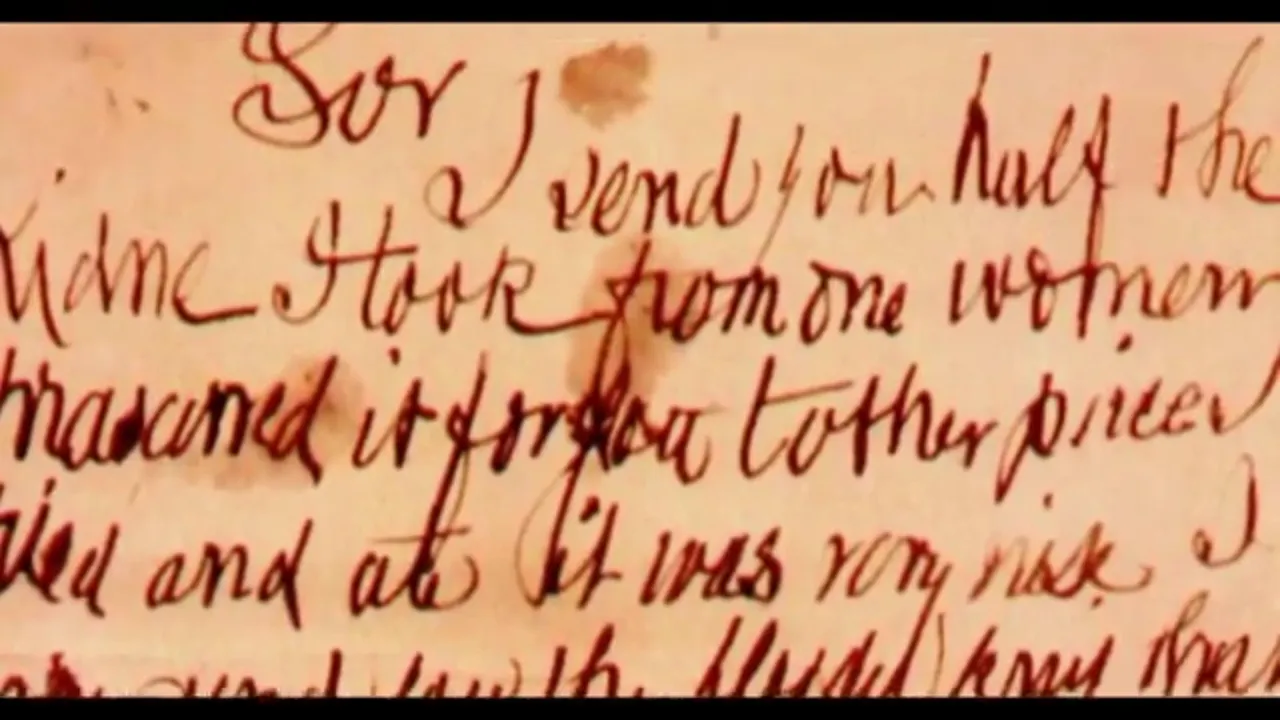 Sor
I send you half the
Kidne I took from one women
prasarved it for you tother piece I
fried and ate it was very nise. I
may send you the bloody knif that